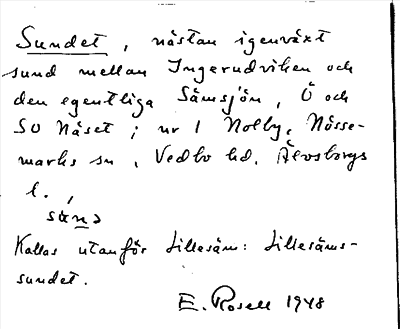 Sundet, nästan igenväxt
sund mellan Ingerudviken och
den egentliga Sämsjön, Ö och
SO Näset; nr 1 Nolby, Nösse-
marks sn, Vedbo hd, Älvsborgs
l.,
Kallas utanför Lillesäm: Lillesäms-
sundet.
E. Rosell 1948